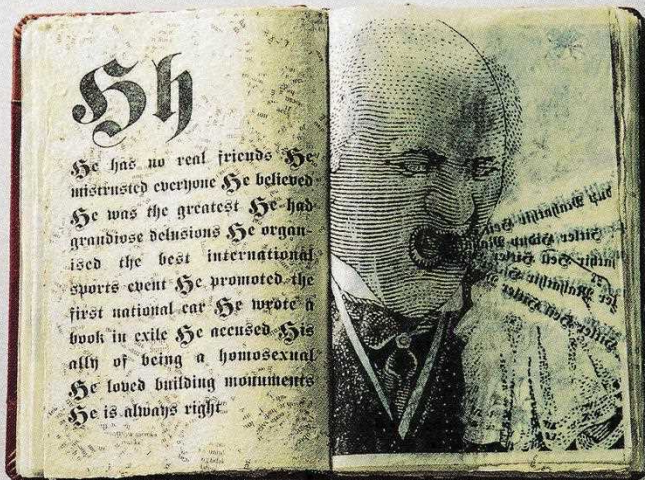 Hh
He has no real friends He
mistrusted everyone He believed
He was the greatest He had
grandiose delusions He organ-
ised the best international
sports event He promoted the
first national car He wrote a
book in exile He accused His
ally of being a homosexual
He loved building monuments
He is always right
Hitler Hidup
Heil Hitler